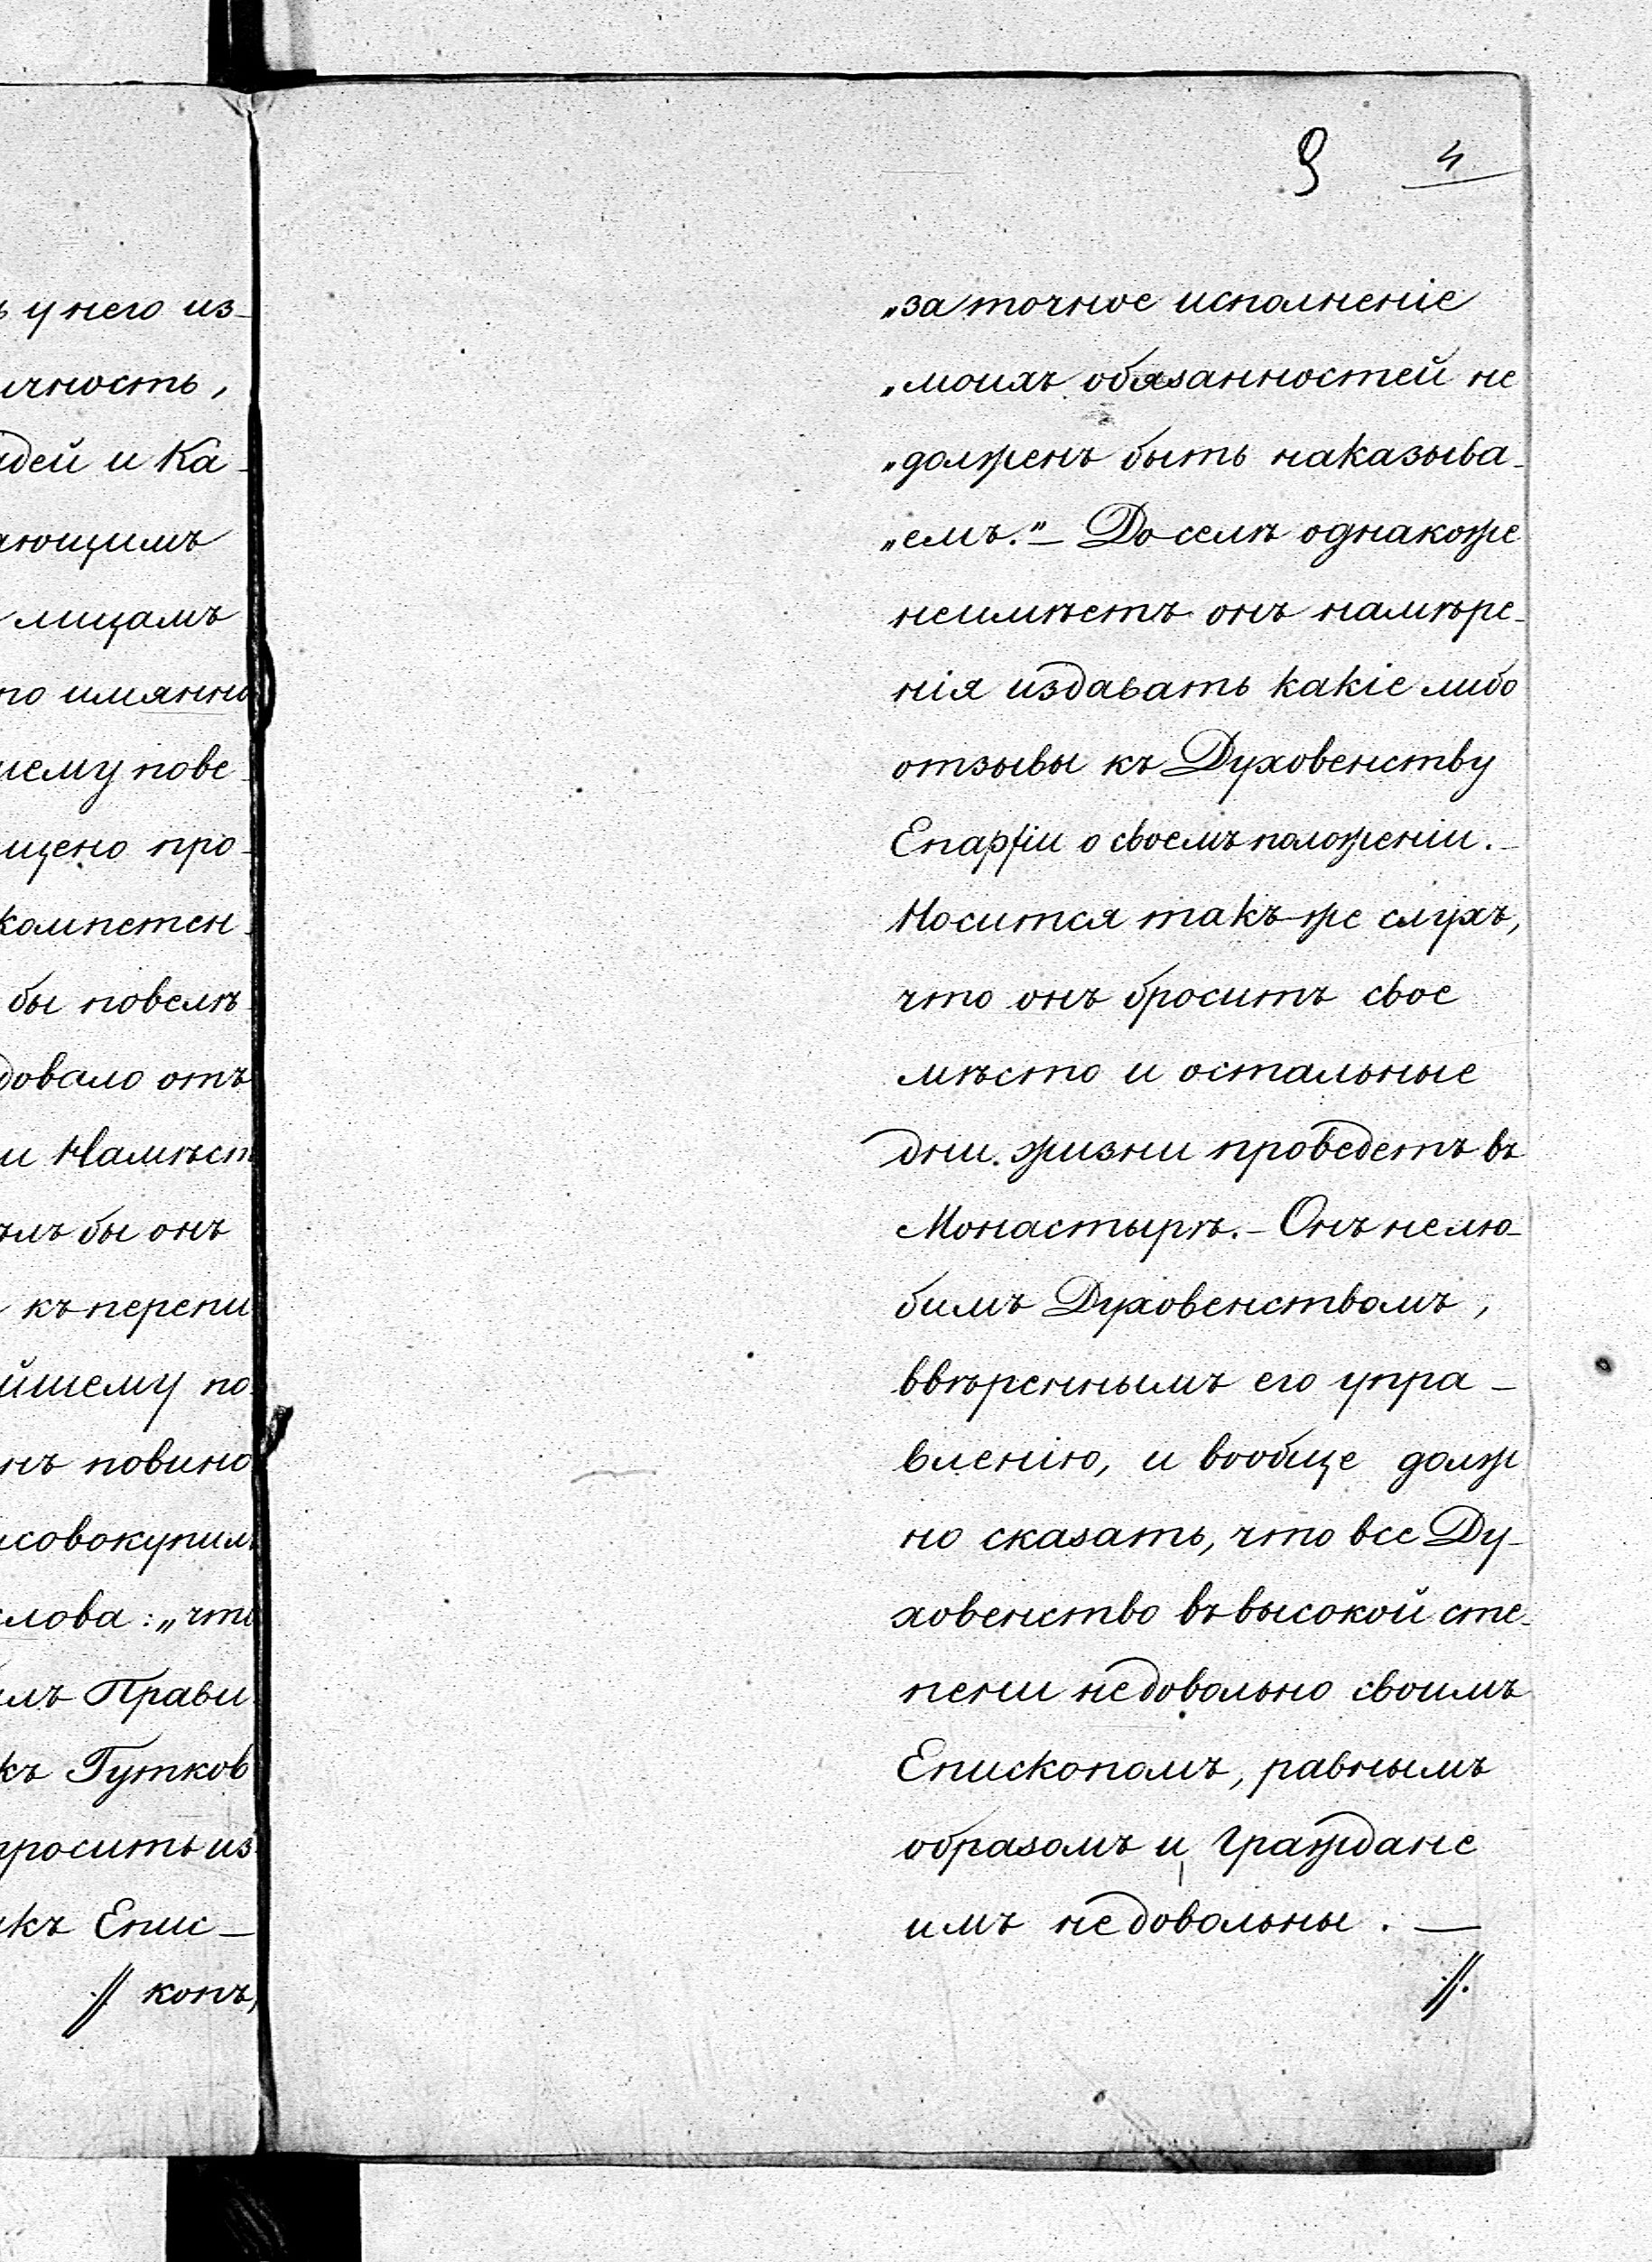 ь у него из-
ичность,
дей и Ка-
ающимъ
лицамъ
по имянно
шему пове-
щено про-
компетен-
бы повелѣ-
довало отъ
и Намѣст
ълъ бы онъ
къ перепи
йшему по-
нъ повино
исовокупилъ
слова: „что
лъ Прави-
къ Гутков
просить из
икъ Епис-
копъ,
9 4
„за точное исполненіе
„моихъ обязанностей не
„долженъ быть наказыва-
„емъ." — До селѣ однакоже
неимѣетъ онъ намѣре-
нія издавать какіе либо
отзывы къ Духовенству
Епархіи о своемъ положеніи. —
Носится такъ-же слухъ,
что онъ броситъ свое
мѣсто и остальные
дни жизни проведетъ въ
Монастырѣ. — Онъ нелю-
бимъ Духовенствомъ,
ввѣреннымъ его упра-
вленію, и вообще долж
но сказать, что все Ду-
ховенство въ высокой сте-
пени недовольно своимъ
Епископомъ, равнымъ
образомъ и Граждане
имъ недовольны. —